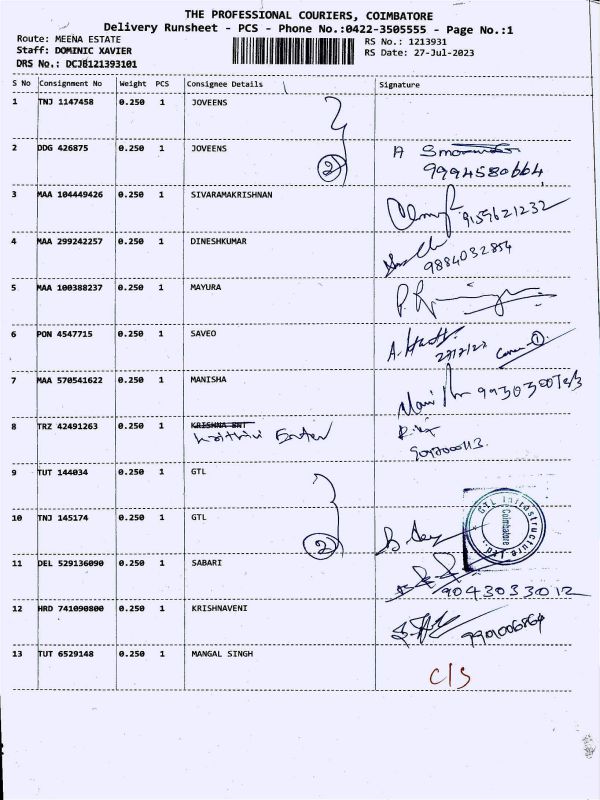 THE PROFESSIONAL COURIERS, COIMBATORE
Delivery Runsheet - PCS - Phone No.:0422-3505555 - Page No.:1
Route: MEENA ESTATE
RS No.: 1213931
Staff: DOMINIC XAVIER
RS Date: 27-Jul-2023
DRS No.: DCJB121393101
S No Consignment No Weight PCS Consignee Details Signature
1 TNJ 1147458 0.250 1 JOVEENS
2 DDG 426875 0.250 1 JOVEENS 2 A
9994580664
3 MAA 104449426 0.250 1 SIVARAMAKRISHNAN 9159621232
4 MAA 299242257 0.250 1 DINESHKUMAR
9884032854
5 MAA 100388237 0.250 1 MAYURA
6 PON 4547715 0.250 1 SAVEO 1
7 MAA 570541622 0.250 1 MANISHA
8 TRZ 42491263 0.250 1 KRISHNA ENT
9 TUT 144034 0.250 1 GTL
10 TNJ 145174 0.250 1 GTL 2
GTL Infrastructure Ltd.
Coimbatore
11 DEL 529136090 0.250 1 SABARI
9043033012
12 HRD 741090800 0.250 1 KRISHNAVENI
13 TUT 6529148 0.250 1 MANGAL SINGH
C/S